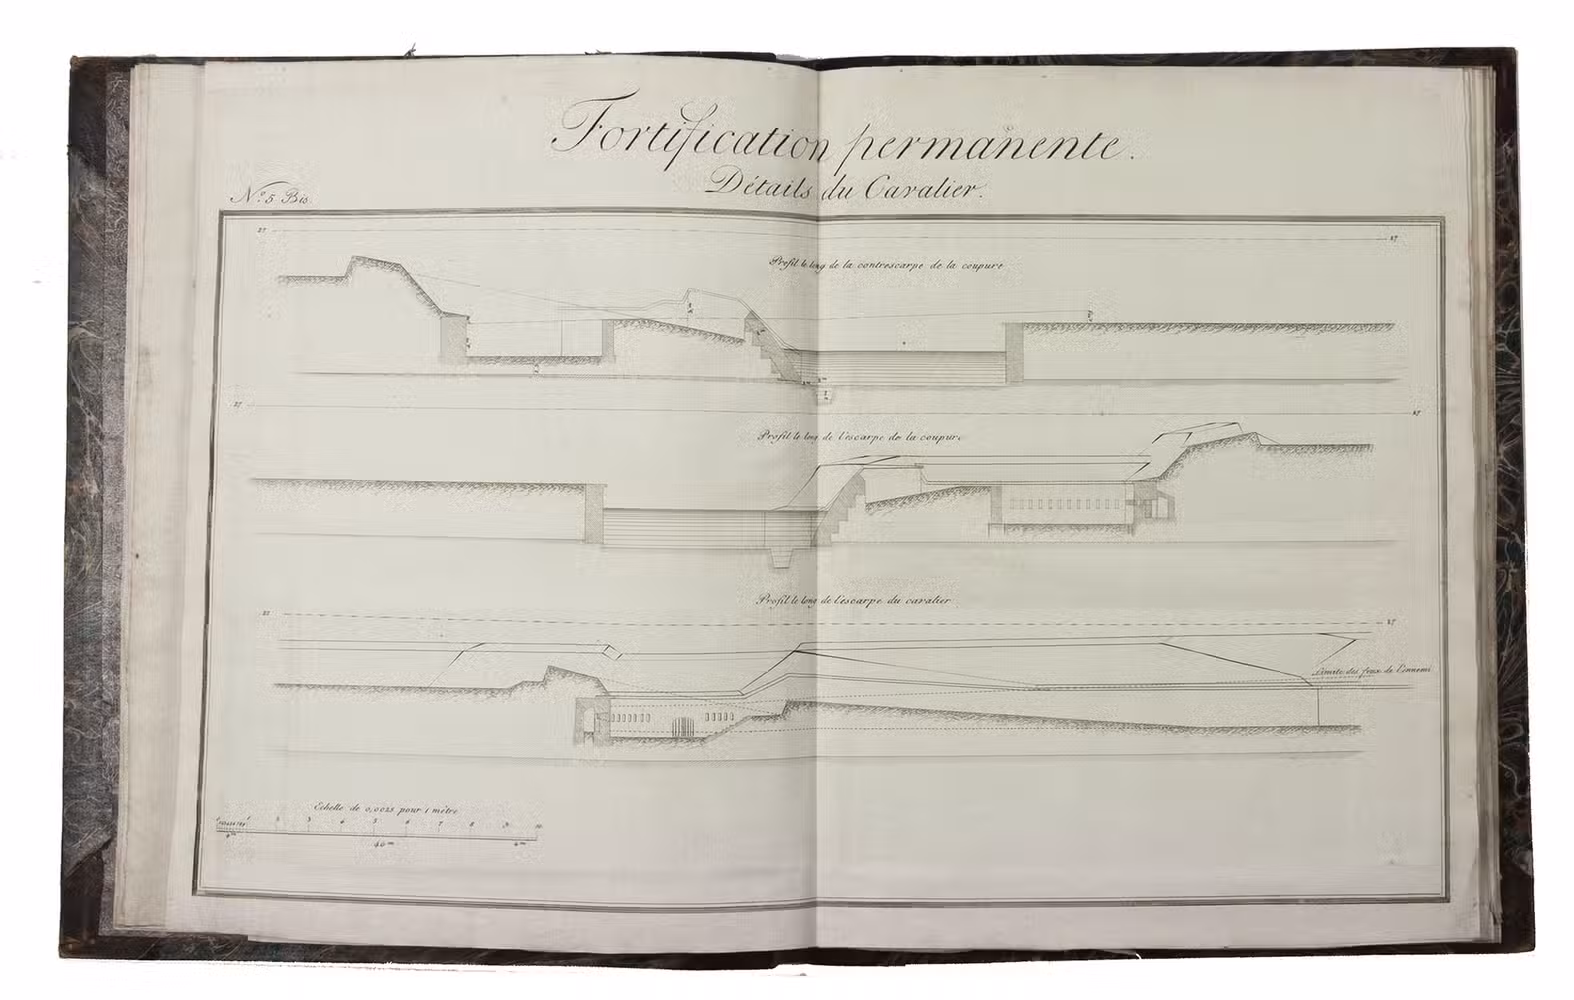 Fortification permanente.
Détails du Cavalier.
N.º 5 Bis.
27 27
Profil le long de la contrescarpe de la coupure
27 27
Profil le long de l'escarpe de la coupure
Profil le long de l'escarpe du cavalier
27 27
Limite des feux de l'ennemi
Echelle de 0,0025 pour 1 mètre
1 2 3 4 5 6 7 8 9 10